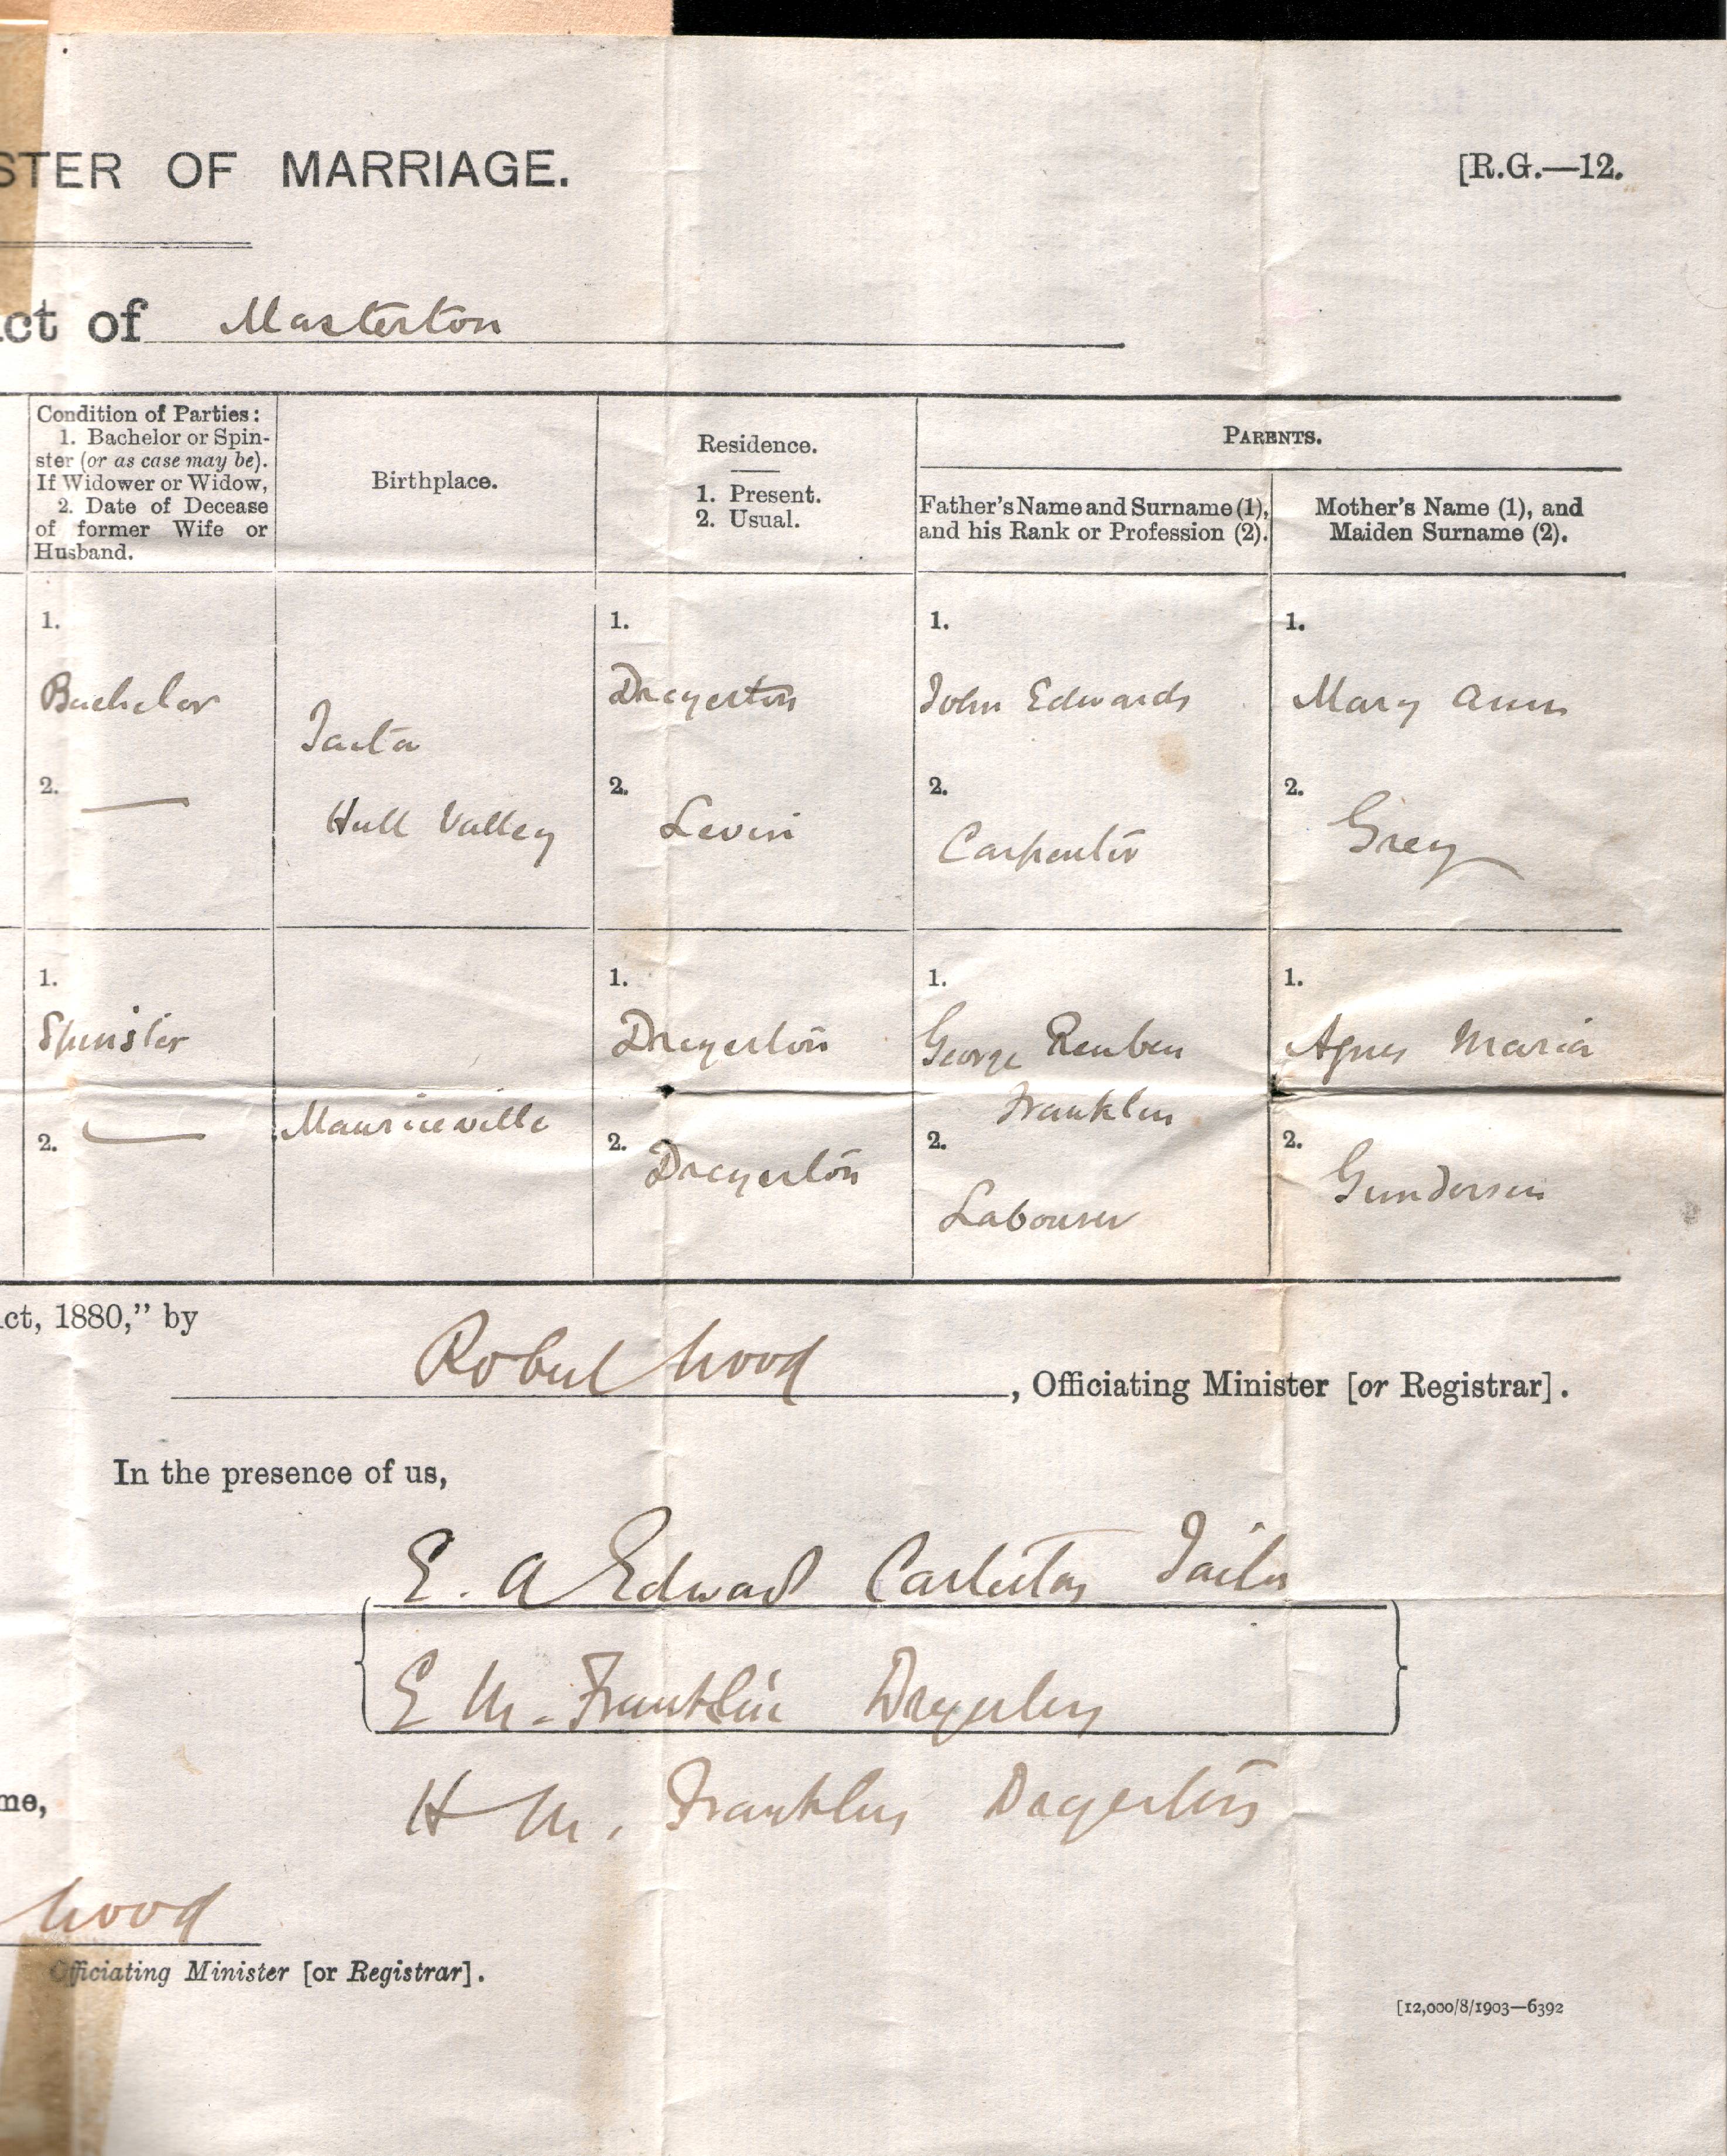 STER OF MARRIAGE.
[R.G.—12.
ct of Masterton
Condition of Parties:
1. Bachelor or Spin-
ster (or as case may be).
If Widower or Widow,
2. Date of Decease
of former Wife or
Husband.
Birthplace.
Residence.
1. Present.
2. Usual.
PARENTS.
Father's Name and Surname (1),
and his Rank or Profession (2).
Mother's Name (1), and
Maiden Surname (2).
1.
Bachelor
2. —
Taita
Hutt Valley
1.
Dreyerton
2.
Levin
1.
John Edwards
2.
Carpenter
1.
Mary Ann
2.
Grey
1.
Spinster
2. —
Mauriceville
1.
Dreyerton
2.
Dreyerton
1.
George Reuben
Franklin
2.
Labourer
1.
Agnes Maria
2.
Gundersen
ct, 1880," by
Robert Wood, Officiating Minister [or Registrar].
In the presence of us,
E. A Edward Carterton
E M. Franklin Dreyerton
H M. Franklin Dreyerton
me,
Wood
Officiating Minister [or Registrar].
[12,000/8/1903—6392